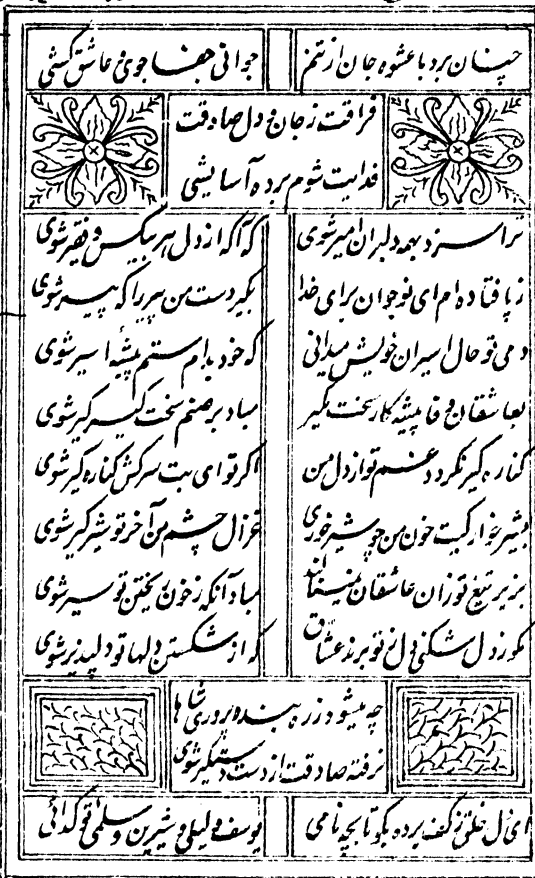 چنان برد با عشوه جان از تنم
جوانی جفا جوی عاشق کشی
فراقت ز جان و دل صادقت
فدایت شوم برده آسایشی
ترا سزد بهمه دلبران امیر شوی
که آگه از دل هر بیکس و فقیر شوی
ز پا فتاده ام ای نوجوان برای خدا
بگیر دست من پیر را که پیر شوی
دمی تو حال اسیران خویش میدانی
که خود بدام ستم پیشهٔ اسیر شوی
بعاشقان وفا پیشه کار سخت مگیر
مباد بر صنم سخت گیر گیر شوی
کناره گیر نگردد غم تو از دل من
اگر تو ای بت سرکش کناره گیر شوی
بشیر خوارگیت خون من چو شیر خوری
غزال چشم من آخر تو شیر گیر شوی
بزیر تیغ تو زان عاشقان
مباد آنکه ز خون ریختن تو سیر شوی
مگو ز دل شکنی دل ز تو برند عشاق
که از شکستن دلها تو دلپذیر شوی
چه میشود ز ره بنده پروری شاها
نرفته صادقت از دست دستگیر شوی
ای دل خلقی ز کف برده بگو تا بچه نامی
یوسف و لیلی و شیرین و سلمی تو کدامی